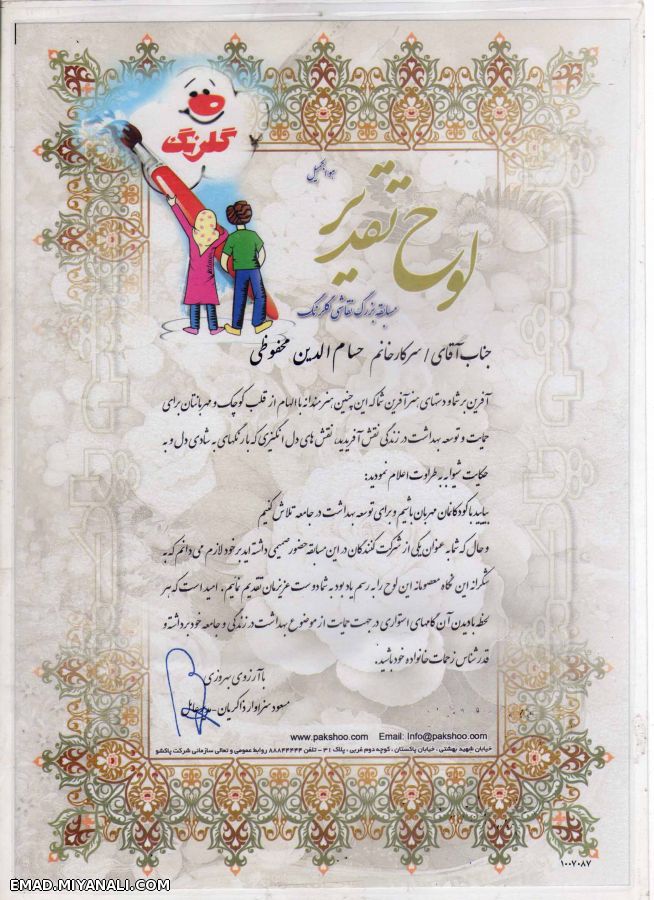 گلرنگ
هوالجمیل
لوح تقدیر
مسابقه بزرگ نقاشی گلرنگ
جناب آقای / سرکار خانم حسام الدین محفوظی
آفرین بر شما و دستهای هنرآفرین شما که این چنین هنرمندانه با الهام از قلب کوچک و مهربانتان برای
حمایت و توسعه بهداشت در زندگی نقش آفریدید، نقش های دل انگیزی که با رنگهای به شادی دل و به
حکایت شیوا به طراوت اعلام نمودید:
بیایید با کودکانمان مهربان باشیم و برای توسعه بهداشت در جامعه تلاش کنیم
و حال که شما به عنوان یکی از شرکت کنندگان در این مسابقه حضور صمیمی داشته اید بر خود لازم می دانم که به
شکرانه این نگاه معصومانه این لوح را به رسم یادبود به شما دوست عزیزمان تقدیم نمائیم. امید است که هر
لحظه با دیدن آن گامهای استواری در جهت حمایت از موضوع بهداشت در زندگی و جامعه خود برداشته و
قدرشناس زحمات خانواده خود باشید.
با آرزوی بهروزی
مسعود سزاوار ذاکریان - مدیرعامل
www.pakshoo.com Email: Info@pakshoo.com
خیابان شهید بهشتی ، خیابان پاکستان ، کوچه دوم غربی ، پلاک ۳۱ - تلفن ۸۸۸۴۴۴۴۴ روابط عمومی و تعالی سازمانی شرکت پاکشو
۱۰۰۷۰۸۷
EMAD.MIYANALI.COM